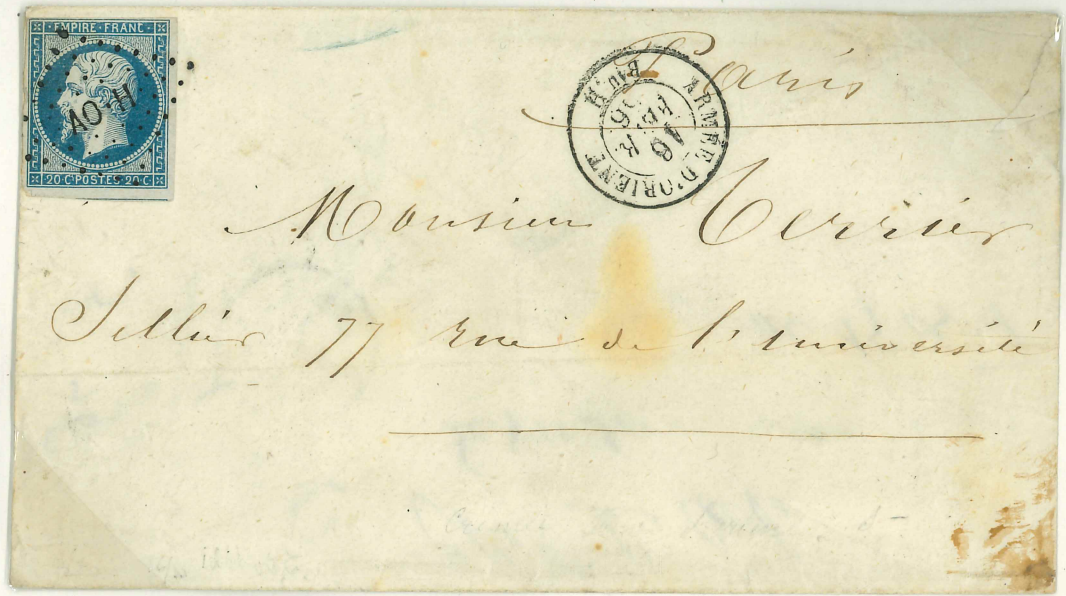 EMPIRE FRANC
AOH
20 C. POSTES 20 C.
ARMÉE D'ORIENT
Bau H.
16
AVR
56
Paris
Monsieur Terrier
Sellier 77 rue de l'université